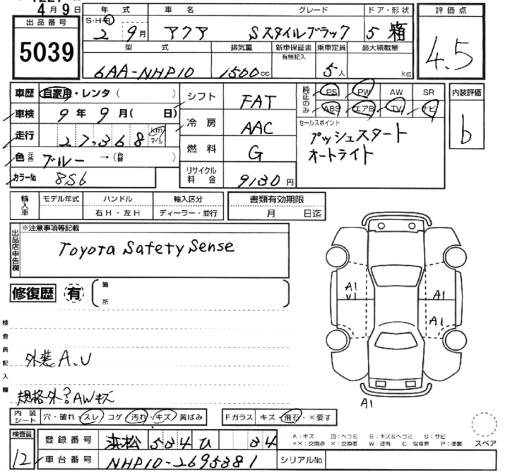 4月9日
出品番号 5039
S・H・R 年式 車名 グレード ドア・形状
2年 9月 アクア Sスタイルブラック 5 箱
型式 排気量 新車保証書 有無記入 乗車定員 最大積載量
6AA-NHP10 1500cc 5人 kg
評価点 4.5
車歴 自家用・レンタ( )
車検 9年9月( 日)
走行 27,368 km マイル
色 ブルー →
カラーNo 8S6
シフト FAT
冷房 AAC
燃料 G
リサイクル料金 9130円
純正のみ PS PW AW SR
ABS エアB TV ナビ
セールスポイント
プッシュスタート
オートライト
内装評価 b
輸入車 モデル年式 ハンドル 輸入区分
右H・左H ディーラー・並行
書類有効期限
月 日迄
出品店申告欄 ※注意事項等記載
Toyota Safety Sense
修復歴 有 箇所
検査員記入欄
外装A.U
規格外?AWキズ
A1
U
A1
A1
内装シート 穴・破れ・スレ コゲ 汚れ・キズ 黄ばみ
Fガラス キズ・飛石・×要す
検査員 12
登録番号 浜松 504 ひ 84
車台番号 NHP10-2695381
シリアルNo
スペア